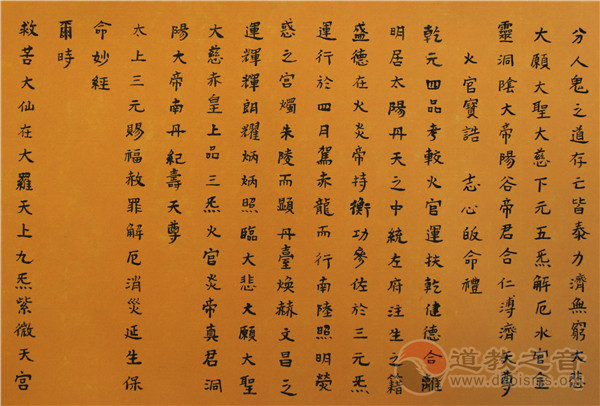 分人鬼之道存亡皆泰力濟無窮大悲
大願大聖大慈下元五炁解厄水官金
靈洞陰大帝陽谷帝君合仁溥濟天尊
火官寳誥 志心皈命禮
乾元四品考較火官運扶乾健德合離
明居太陽丹天之中統左府注生之籍
盛德在火炎帝持衡功參佐於三元炁
運行於四月駕赤龍而行南陸照明熒
惑之宫燭朱陵而顯丹臺煥赫文昌之
運輝輝朗耀炳炳照臨大悲大願大聖
大慈赤皇上品三炁火官炎帝真君洞
陽大帝南丹紀壽天尊
太上三元賜福赦罪解厄消災延生保
命妙經
爾時
救苦大仙在大羅天上九炁紫微天宫
道教之音
www.daoisms.org